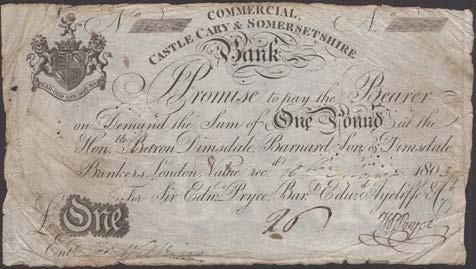 No No
COMMERCIAL,
CASTLE CARY & SOMERSETSHIRE
Bank
Promise to pay the Bearer
on Demand the Sum of One Pound at the
Honble. Baron Dimsdale, Barnard Son & Dimsdale,
Bankers London, Value recd. 16 1803
For Sir Edwd. Pryce, Bart. Edwd. Aycliffe & Co.
£ One
Entd.